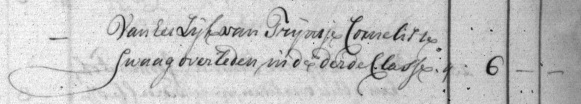 Van Een Lijk van Trijntje Cornelisse
Swaag overleden, in de derde Classe. 6 — —